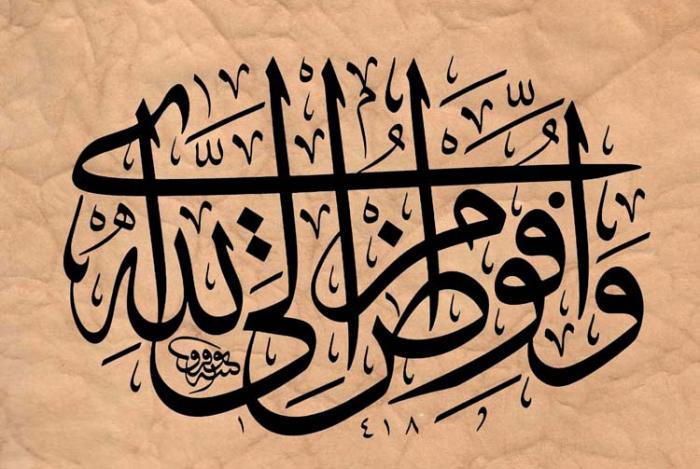 وَاُفَوِّضُ اَمْرِى اِلَى اللّٰهِ
١٤١٨